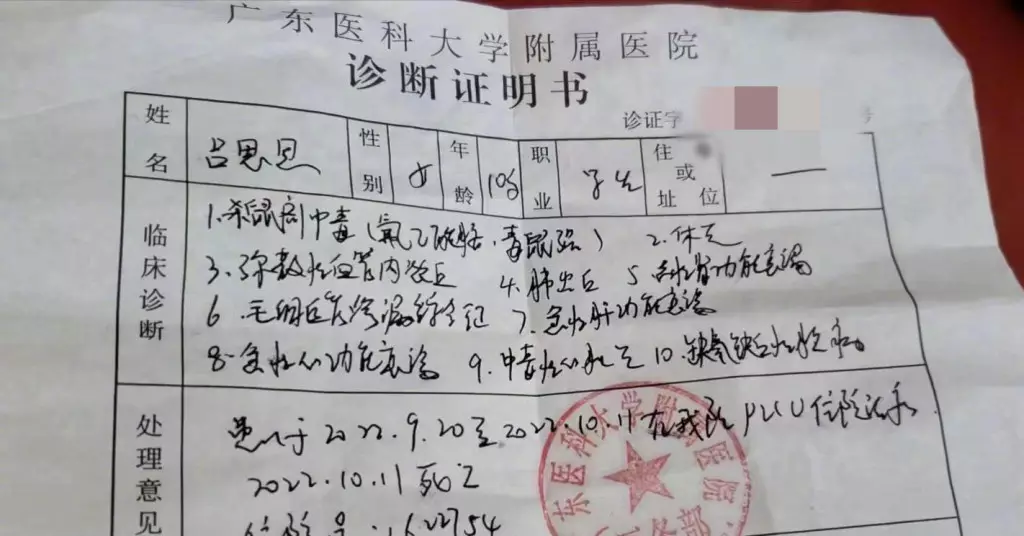 广东医科大学附属医院
诊断证明书
诊证字 号
姓名 吕思恩 性别 女 年龄 10岁 职业 学生 住址或单位 —
临床诊断
1.杀鼠剂中毒(氟乙酰胺、毒鼠强) 2.休克
3.弥散性血管内凝血 4.肺出血 5.急性肾功能衰竭
6.毛细血管渗漏综合征 7.急性肝功能衰竭
8.急性心功能衰竭 9.中毒性心肌炎 10.缺氧缺血性脑病
处理意见
患儿于2022.9.20至2022.10.11在我院PICU住院治疗
2022.10.11死亡
住院号:1622754
东医科大学附属医院